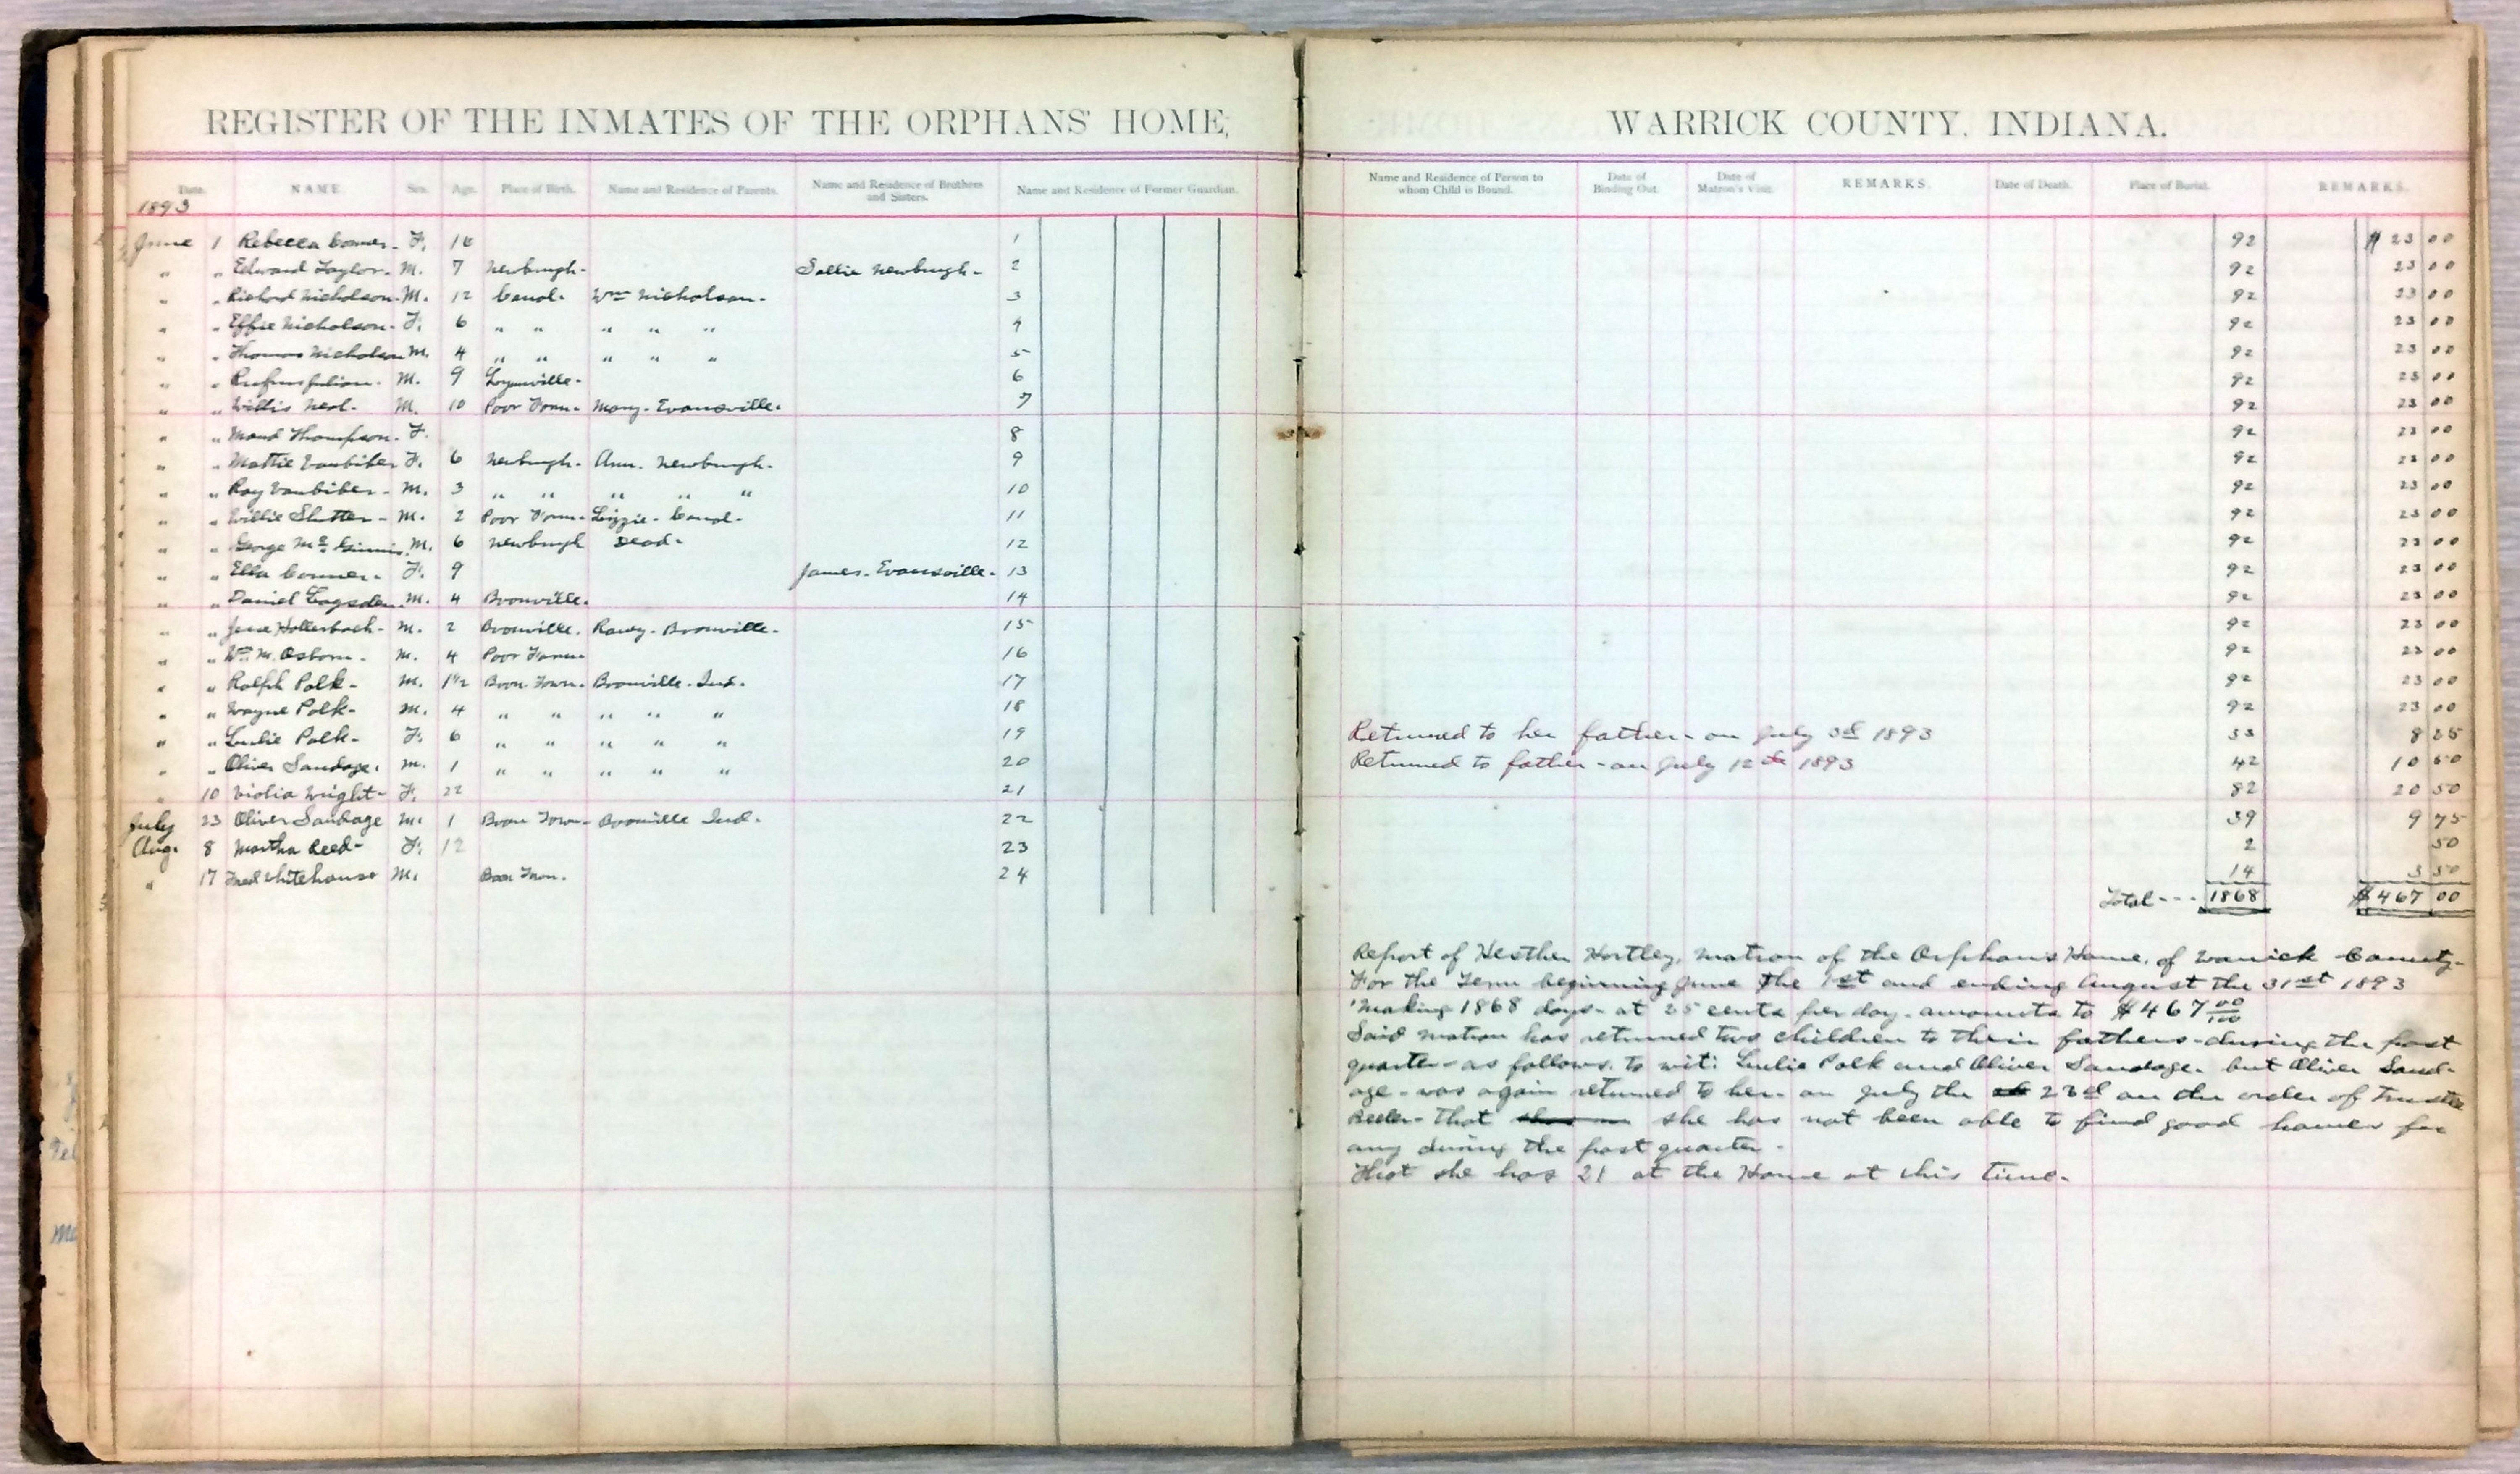 REGISTER OF THE INMATES OF THE ORPHANS' HOME, WARRICK COUNTY, INDIANA.
Date. NAME Sex. Age. Place of Birth. Name and Residence of Parents. Name and Residence of Brothers and Sisters. Name and Residence of Former Guardian. Name and Residence of Person to whom Child is Bound. Date of Binding Out. Date of Matron's Visit. REMARKS. Date of Death. Place of Burial. REMARKS.
1893
June 1 Rebecca F. 16 1 92 $23 00
" " Edward Taylor- M. 7 Newburgh- Sallie Newburgh- 2 92 23 00
" " Richard Nicholson- M. 12 Canal- Wm Nicholson- 3 92 23 00
" " Effie Nicholson- F. 6 " " " " " 4 92 23 00
" " Thomas Nicholson M. 4 " " " " " 5 92 23 00
" " Rufus Julian- M. 9 Lynnville- 6 92 23 00
" " Willis Neal- M. 10 Poor Farm- Mary- Evansville- 7 92 23 00
" " Maud Thompson- F. 8 92 23 00
" " Mattie Vanbiber F. 6 Newburgh- Ann. Newburgh- 9 92 23 00
" " Roy Vanbiber- M. 3 " " " " " 10 92 23 00
" " Willie M. 2 Poor Farm- Lizzie- Canal- 11 92 23 00
" " George Mc Ginnis M. 6 Newburgh Dead- 12 92 23 00
" " Ella Conner- F. 9 James- Evansville- 13 92 23 00
" " Daniel M. 4 Boonville- 14 92 23 00
" " Jesse Hollerbach- M. 2 Boonville. Boonville- 15 92 23 00
" " Wm M. Osborn- M. 4 Poor Farm- 16 92 23 00
" " Ralph Polk- M. 1½ Boon. Town- Boonville- Ind. 17 92 23 00
" " Wayne Polk- M. 4 " " " " " 18 92 23 00
" " Lulie Polk- F. 6 " " " " " 19 Returned to her father- on July 3d 1893 33 8 25
" " Oliver Sandage. M. 1 " " " " " 20 Returned to father- on July 12th 1893 42 10 50
" 10 Violia Wright- F. 22 21 82 20 50
July 23 Oliver Sandage M. 1 Boon Town- Boonville Ind. 22 39 9 75
Aug. 8 Martha Reed- F. 12 23 2 50
" 17 Fred Whitehouse M. Boon Town. 24 14 3 50
Total --- 1868 $467 00
Report of Hesther Hartley, Matron of the Orphan's Home, of Warrick County-
For the Term beginning June the 1st and ending August the 31st 1893
Making 1868 days- at 25 cents per day- amounts to $467 00/100
Said matron has returned two children to their fathers- during the past
quarter- as follows. to wit: Lulie Polk and Oliver Sandage- but Oliver Sand-
age- was again returned to her- on July the 23d on the order of Trustee
that she has not been able to find good homes for
any during the past quarter-
That she has 21 at the Home at this time-